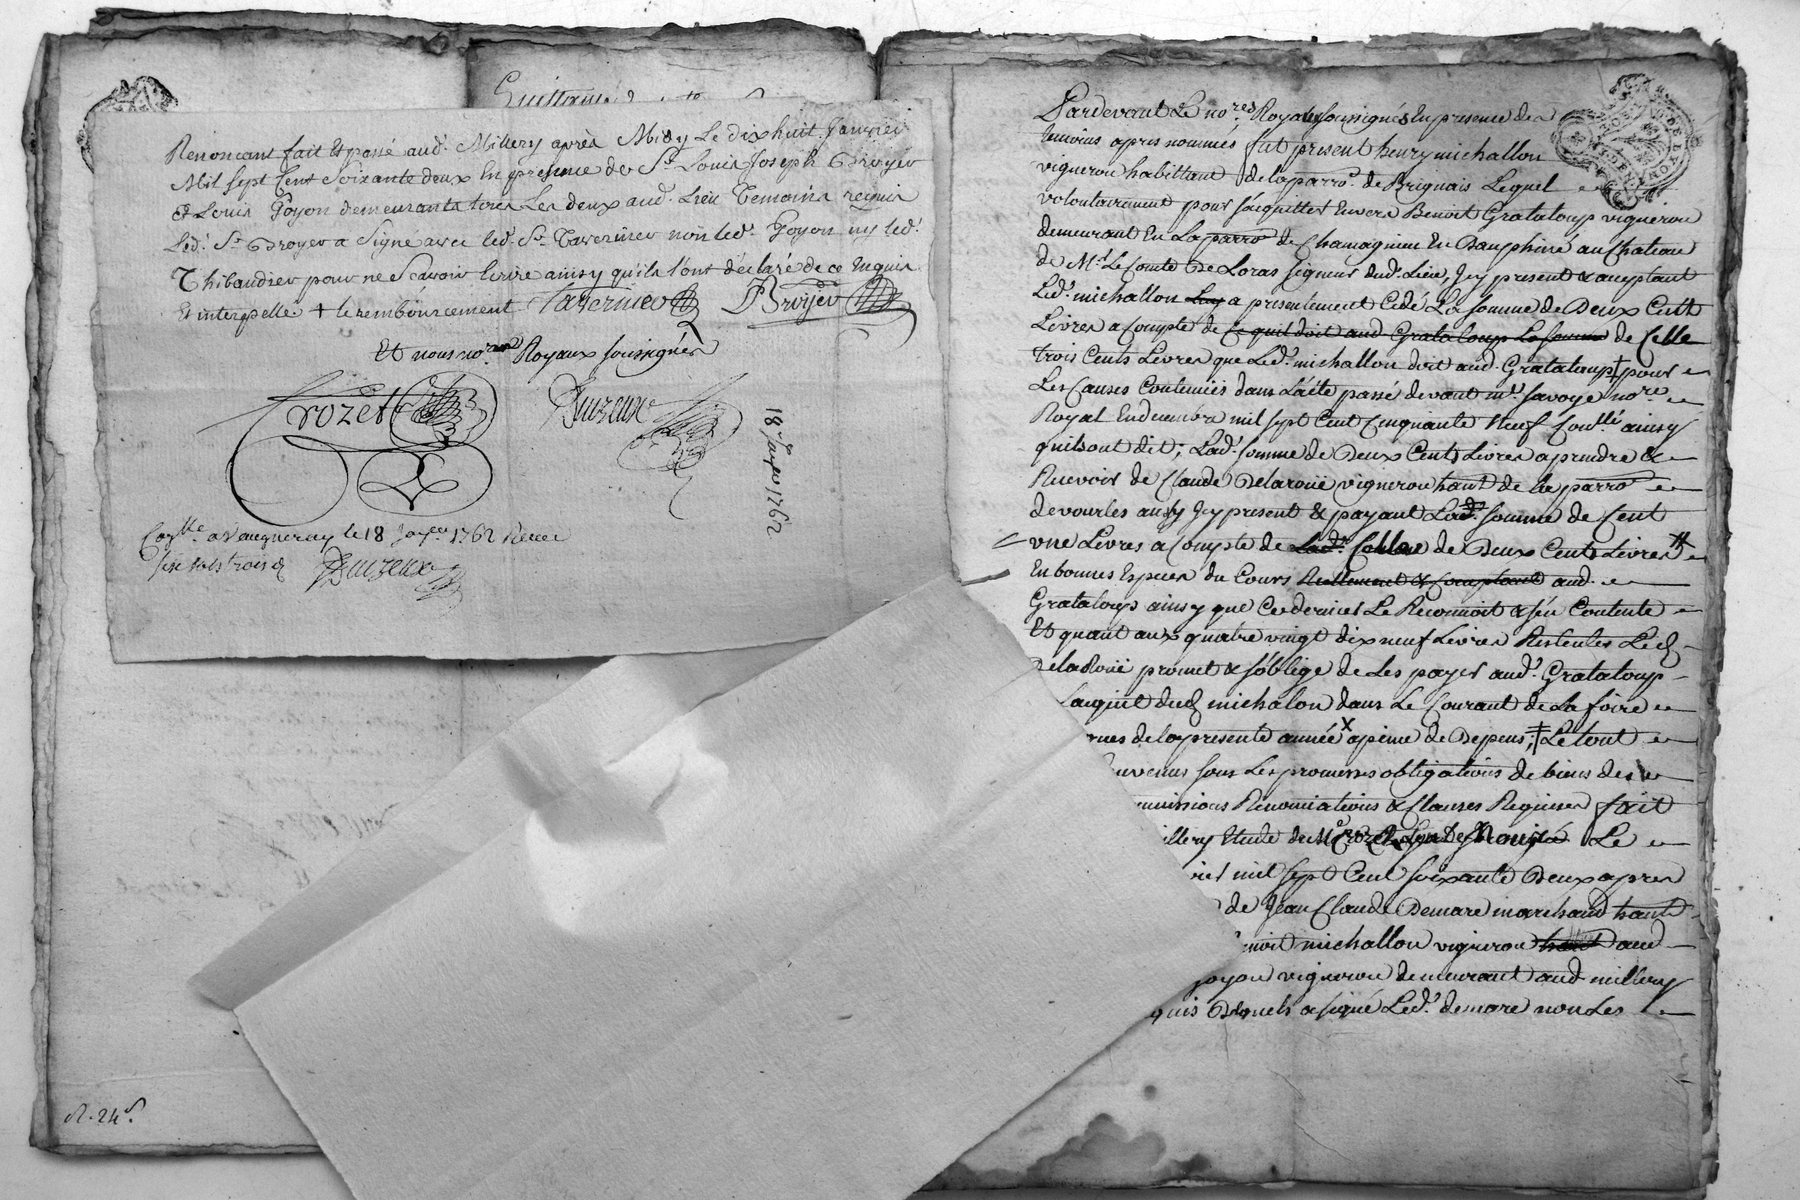 Renoncant fait et passé aud. Millery après Midy Le dix huit Janvier
Mil sept Cent Soixante deux En presence de Sr. Louis Joseph Broyer
et Louis Goyon demeurants tous Les deux aud. Lieu Temoins requis
Led. Sr. Broyer a signé avec led. Sr. Tavernier non led. Goyon ny led.
Thibaudier pour ne Scavoir Ecrire ainsy qu'ils l'ont déclaré de ce Enquis
Et interpellé + le rembourcement Tavernier Broyer
Et nous nores Royaux soussignés
Crozet Buzeux
18 Janer 1762
Conlle a Vaugneray le 18 Janer 1762 Receu
sols trois d Buzeux
R. 24s.
Pardevant Le nores. Royaux soussignés En presence des
temoins apres nommés fut present henry michallon
vigneron habittant de la parro. de Brignais Lequel
volontairement pour s'acquitter Envers Benoit Grataloup vigneron
demeurant En La parro de Chamagnieu En Dauphiné au Chateau
de Mr. Le Comte De Loras signeur dud. Lieu, Icy present & acceptant
Led. michallon a presentement Cedé La somme de Deux Cents
Livres a Compte de ce quil doit aud Grataloup La somme de Celle
trois Cents Livres que Led. michallon doit aud. Grataloup + pour
Les Causes Contenües dans L'acte passé devant me. Savoye nore
Royal En decembre mil sept Cent Cinquante Neuf Conllé ainsy
quils ont dit; Lad. somme de Deux Cents Livres a prendre &
Recevoir de Claude Delaroüe vigneron hant de la parro
de vourles aussy Icy present & payant Lad. somme de Cent
une Livres a Compte de de Deux Cents Livres #
En bonnes Especes du Cours Rellement & Comptant aud.
Grataloup ainsy que Ce dernier Le Reconnoit &
Et quant aux quatre vingt dix neuf Livres Restentes Led
Delaroüe promet & s'oblige de Les payer aud. Grataloup
L'acquit dud michalon dans Le Courant de La foire
de la presente année X a peine de Depens; ‡ Le tout
sous Les promesses obligations de biens
Renonciations & Clauses Requises fait
Etude de Me Crozet Le
mil sept Cent soixante Deux apres
de Jean Claude Demare marchand hant
michallon vigneron hant aud
vigneron demeurant aud millery
Desquels a signé Led. demare non Les